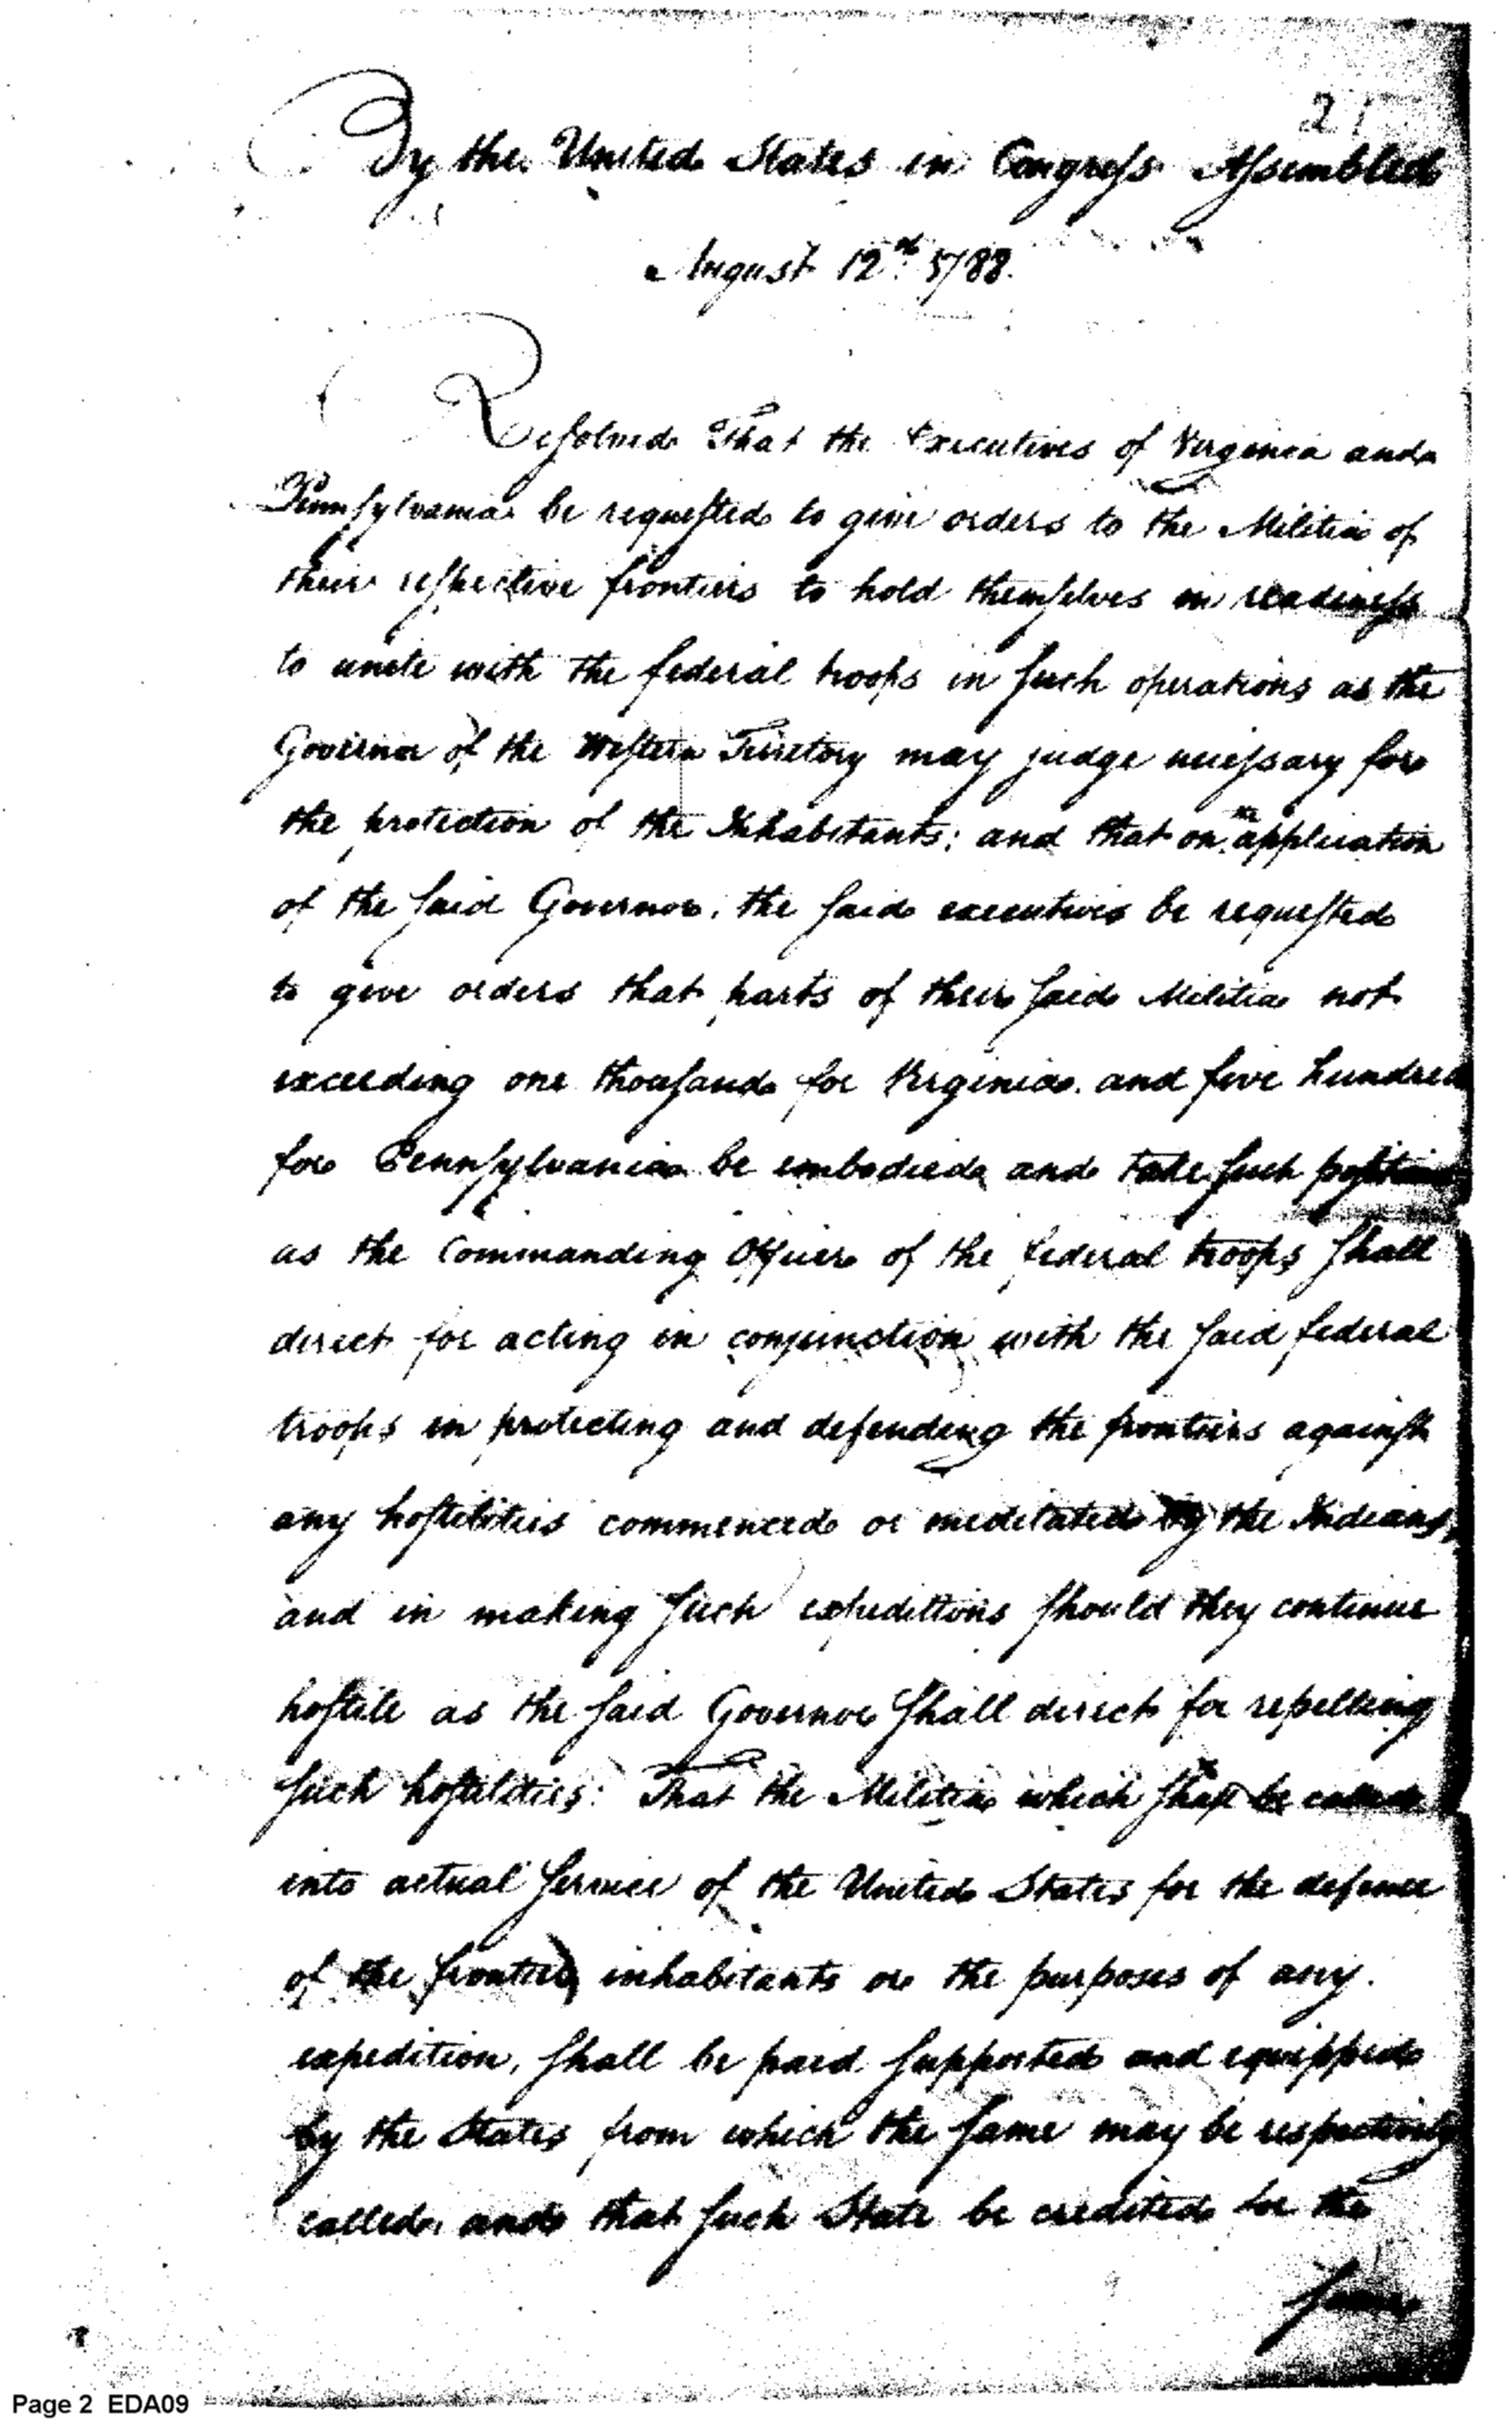 21
By the United States in Congress Assembled
August 12th 1788.
Resolved That the Executives of Virginia and
Pennsylvania be requested to give orders to the Militia of
their respective frontiers to hold themselves in readiness
to unite with the federal troops in such operations as the
Governor of the Western Territory may judge necessary for
the protection of the Inhabitants; and that on an application
of the said Governor, the said executives be requested
to give orders that parts of their said Militia not
exceeding one thousand for Virginia and five hundred
for Pennsylvania be embodied and take such position
as the Commanding Officer of the federal troops shall
direct for acting in conjunction with the said federal
troops in protecting and defending the frontiers against
any hostilities commenced or meditated by the Indians,
and in making such expeditions should they continue
hostile as the said Governor shall direct for repelling
such hostilities: That the Militia which shall be called
into actual service of the United States for the defence
of the frontier inhabitants or the purposes of any
expedition, shall be paid supported and equipped
by the States from which the same may be respectively
called and that such State be credited for the
same
Page 2 EDA09